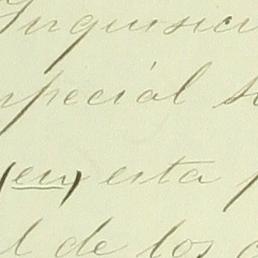 Inquisici
special s
(en) esta p
l de los c